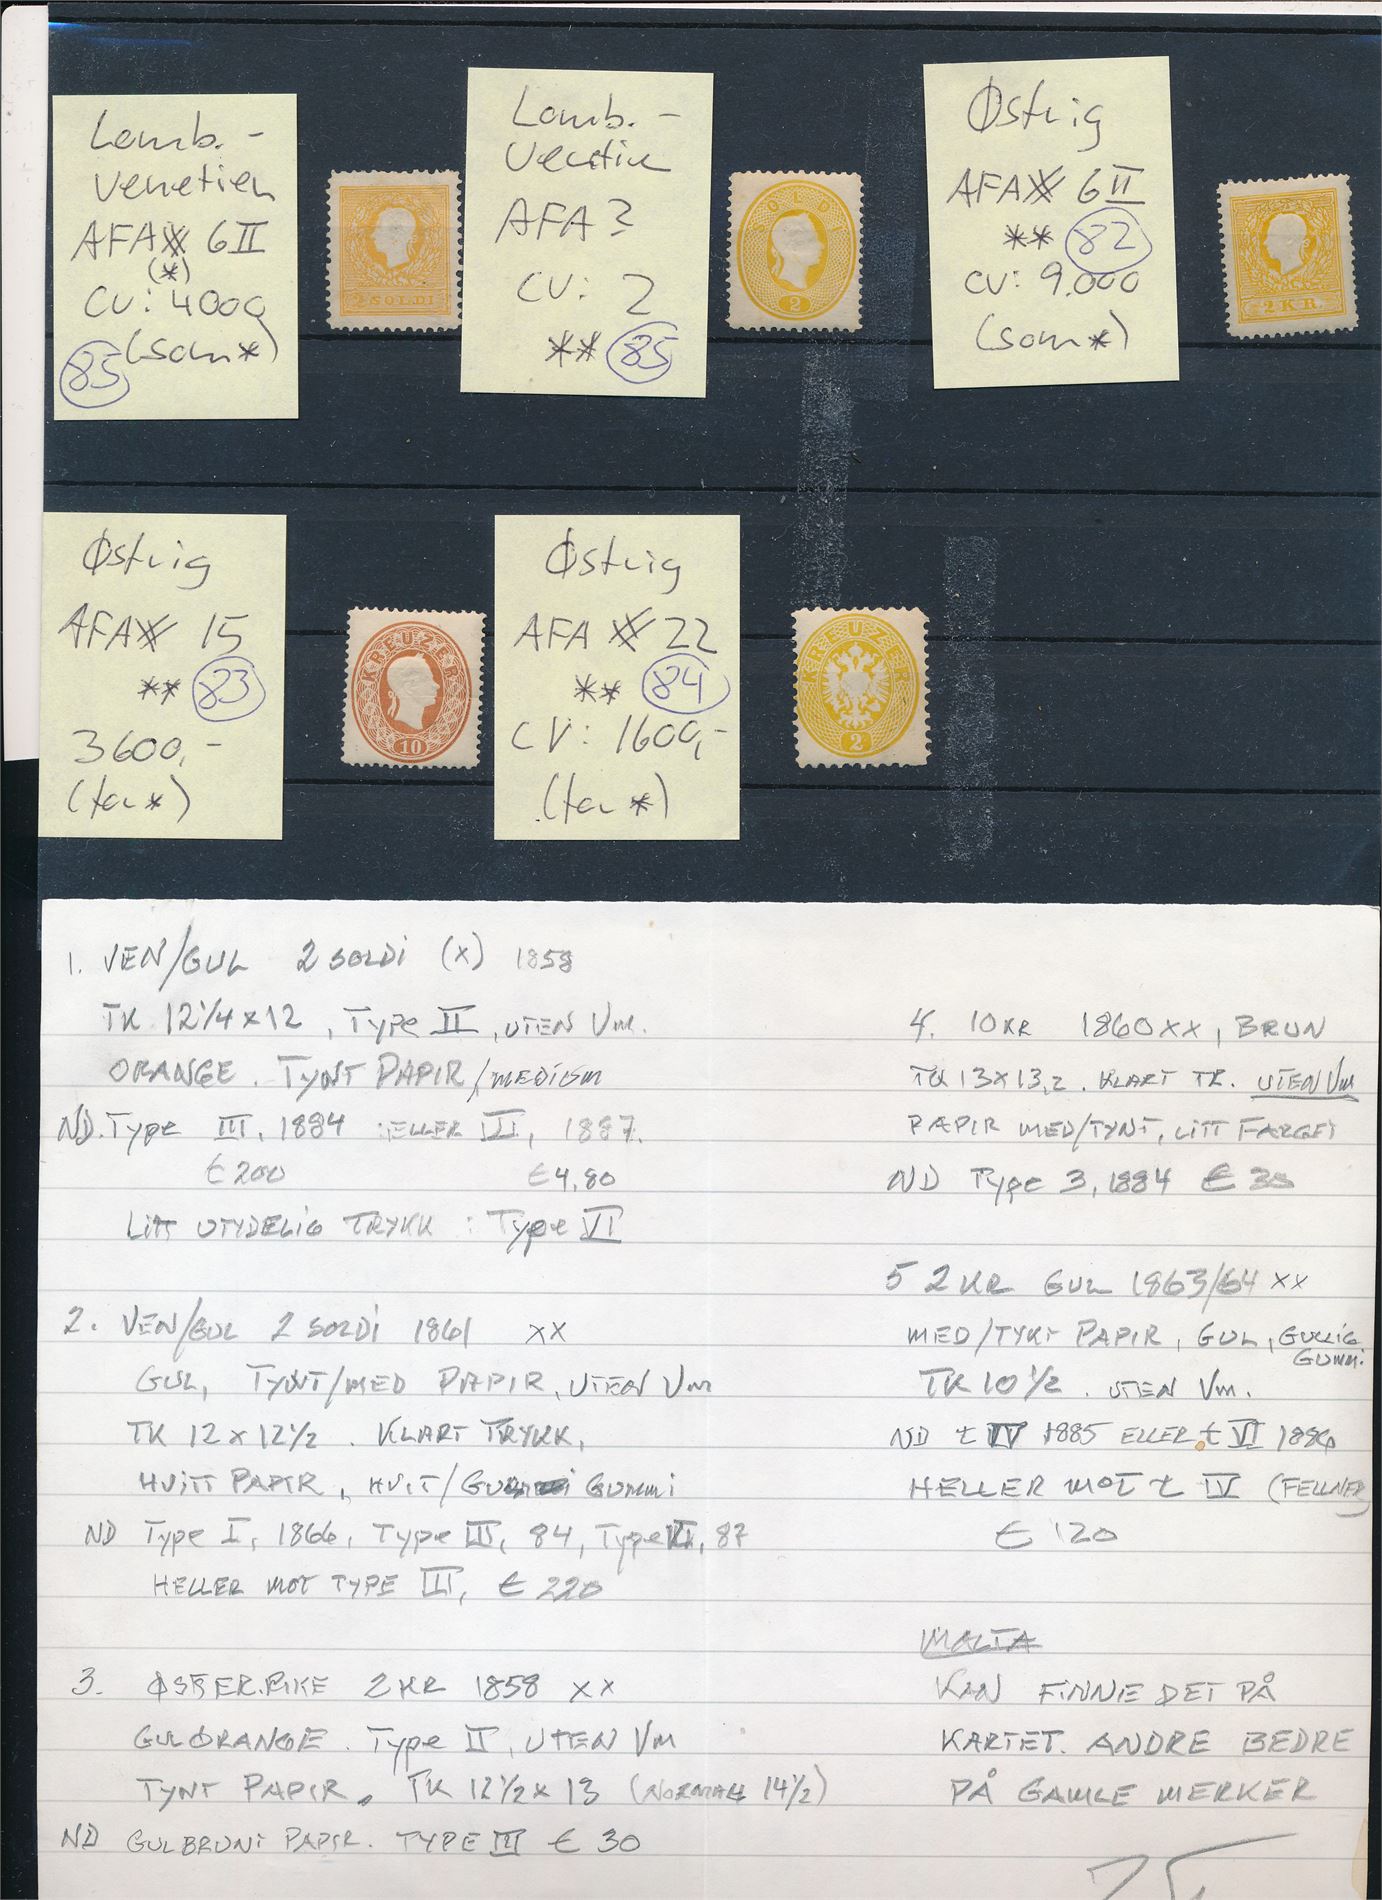 Lomb.-
Venetien
AFA 6 II
(*)
CV: 4000
(som *)
85
2 SOLDI
Lomb.-
AFA ?
CV: 2
** 85
SOLDI
2
Østrig
AFA 6 II
** 82
CV: 9.000
(som *)
2 KR.
Østrig
AFA 15
** 83
3600,-
(for *)
KREUZER
10
Østrig
AFA 22
** 84
CV: 1600,-
(for *)
KREUZER
2
1. VEN/GUL 2 SOLDI (x) 1858
TK 12 1/4 x 12, Type II, UTEN Vm.
ORANGE. TYNT PAPIR/MEDIUM
ND. Type III, 1884 : ELLER VI, 1887.
€ 200 €4,80
LITT UTYDELIG TRYKK : Type VI
2. VEN/GUL 2 SOLDI 1861 xx
GUL, TYNT/MED PAPIR, UTEN Vm
TK 12 x 12 1/2. KLART TRYKK,
HVITT PAPIR, HVIT/ GUMMI
ND Type I, 1866, Type III, 84, Type VI, 87
HELLER MOT TYPE III, € 220
3. ØSTERRIKE 2 KR 1858 xx
GULORANGE. Type II, UTEN Vm
TYNT PAPIR. TK 12 1/2 x 13 (NORMALT 14 1/2)
ND GULBRUNT PAPIR. TYPE III € 30
4. 10 KR 1860 xx, BRUN
TK 13 x 13,2. KLART TR. UTEN Vm
PAPIR MED/TYNT, LITT FARGET
ND Type 3, 1884 € 30
5 2 KR GUL 1863/64 xx
MED/TYKT PAPIR, GUL, GULLIG
GUMMI.
TK 10 1/2. UTEN Vm.
ND t IV 1885 ELLER t VI 1886
HELLER MOT t IV (FELLNER)
€ 120
MALTA
KAN FINNE DET PÅ
KARTET. ANDRE BEDRE
PÅ GAMLE MERKER